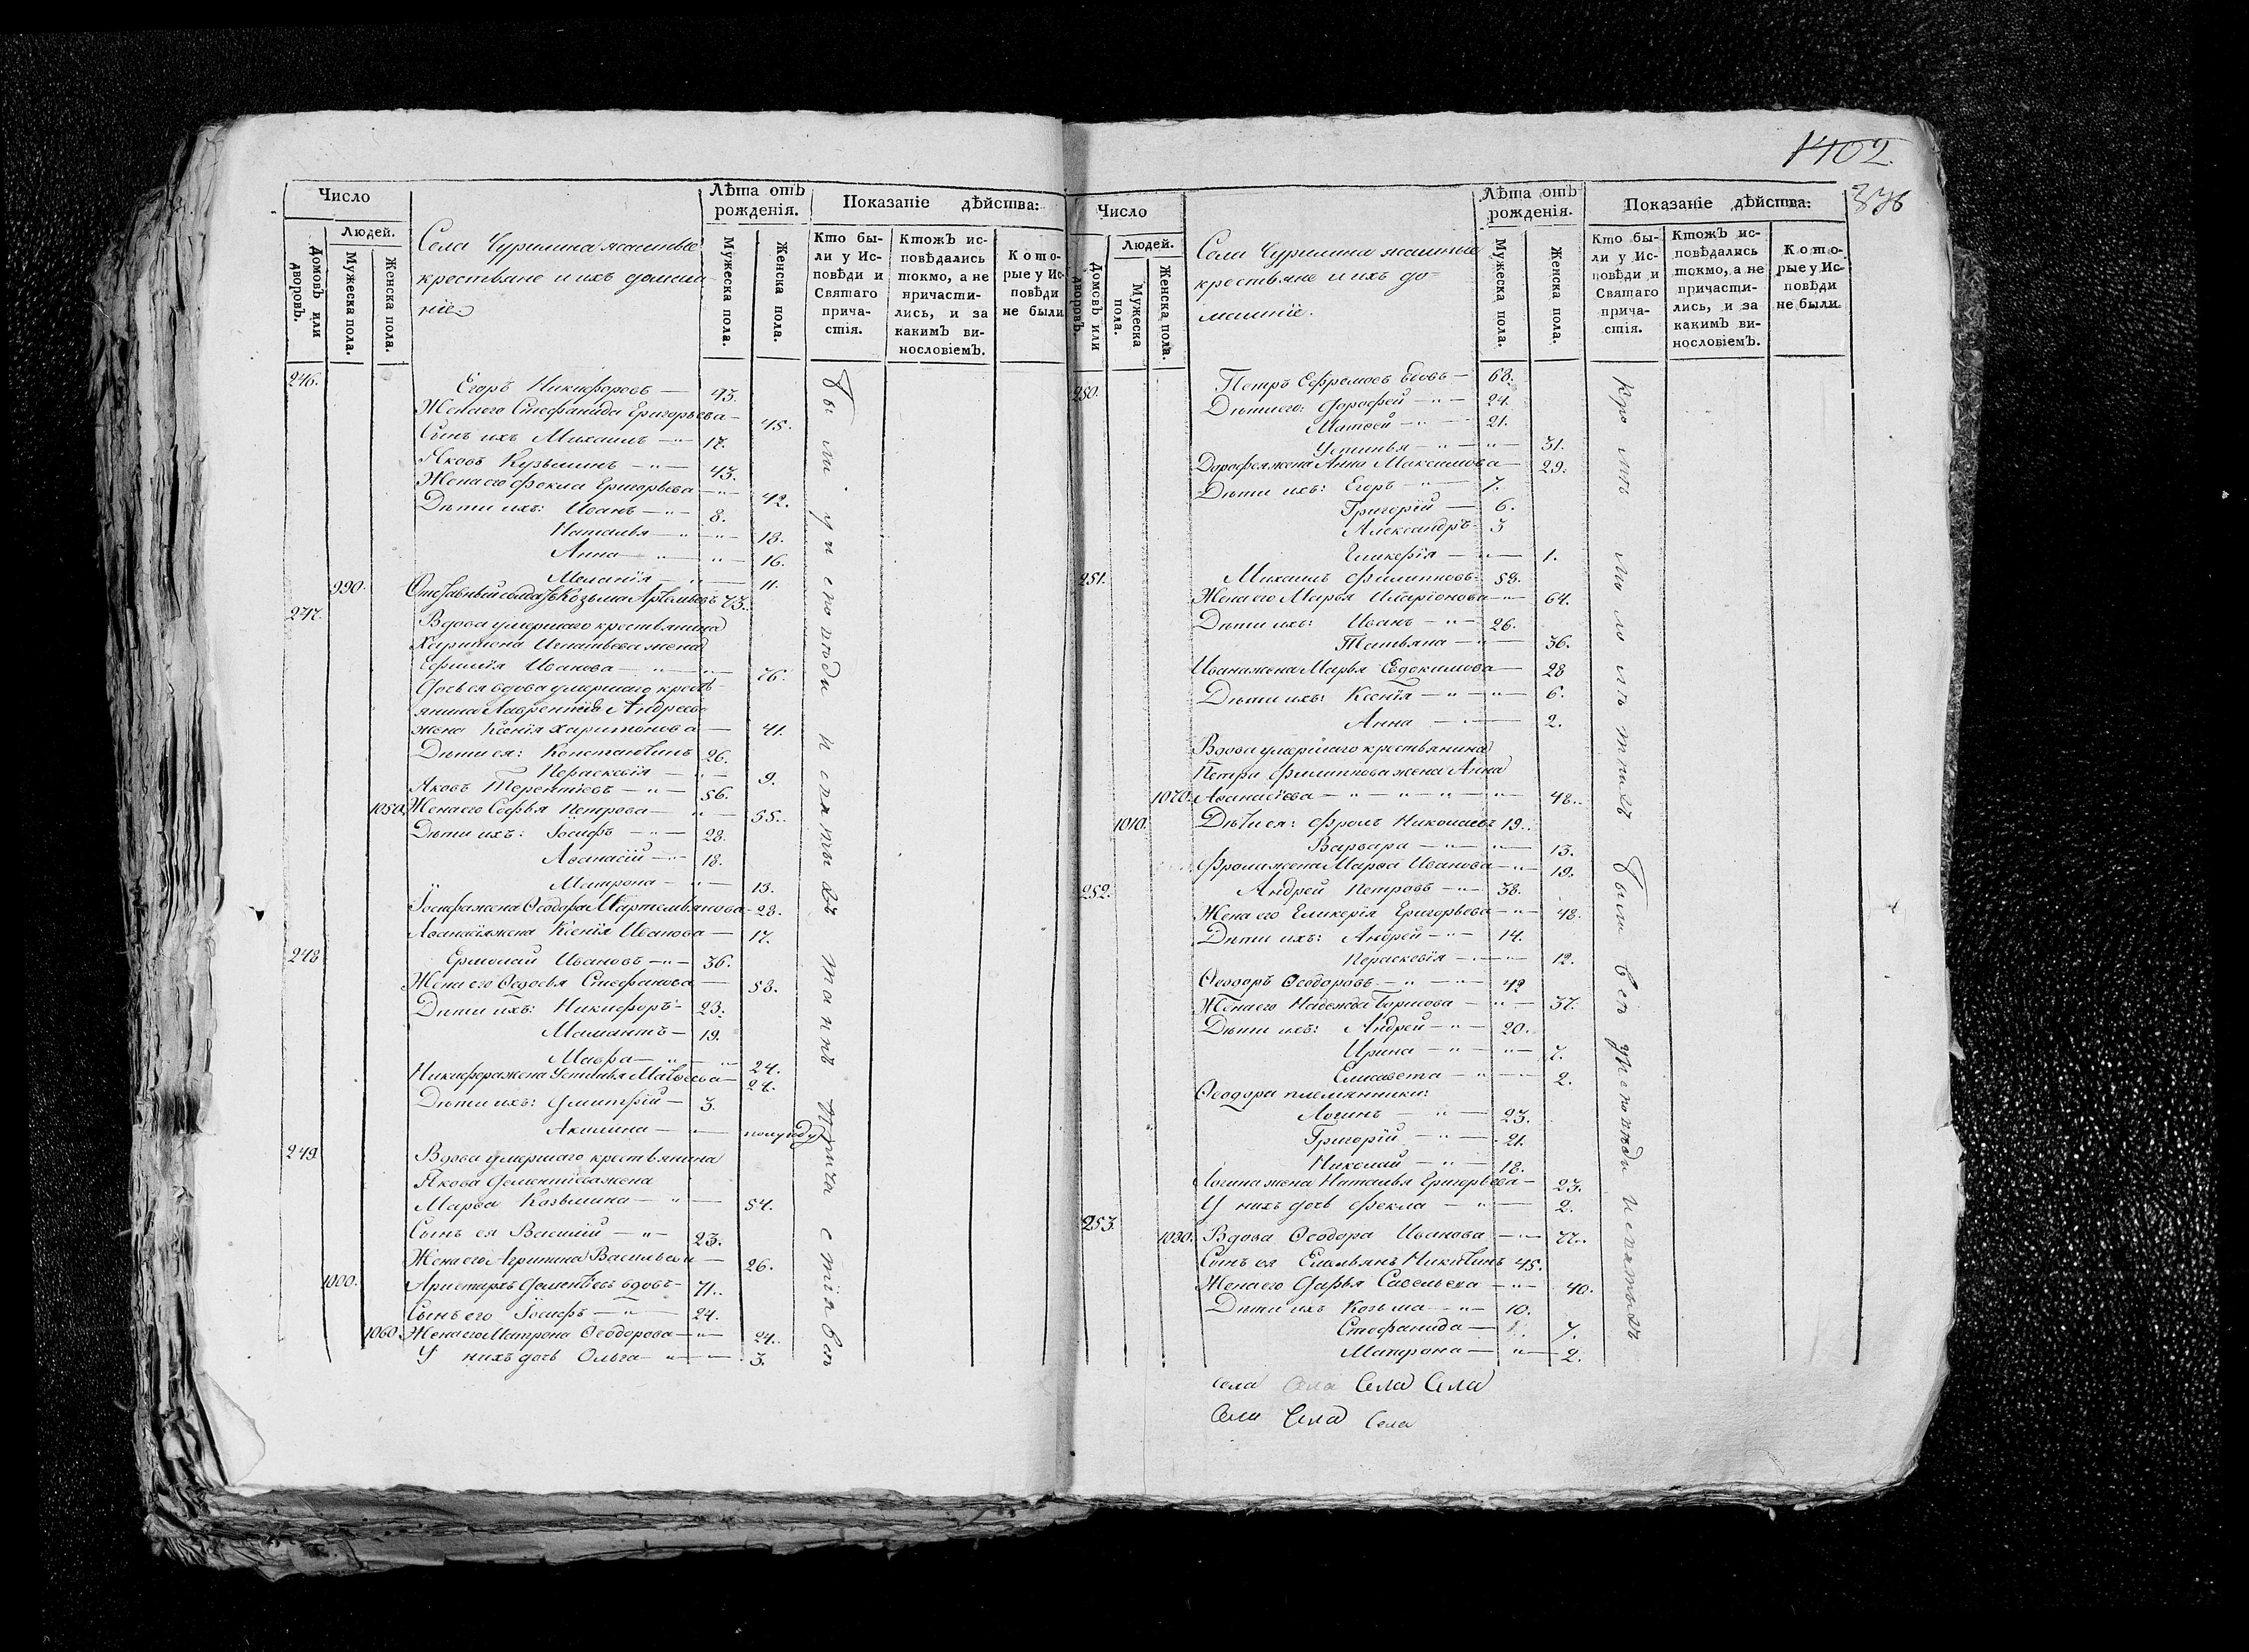 1402.
376
Число
Лѣта отъ рожденія.
Показаніе дѣйства:
Людей.
Домовъ или дворовъ.
Мужеска пола.
Женска пола.
Села Чурилина ясашные
крестьяне и ихъ домаш
ніе
Мужеска пола.
Женска пола.
Кто бы-
ли у Ис-
повѣди и
Святаго
прича-
стія.
Ктожъ ис-
повѣдались
токмо, а не
причасти-
лись, и за
какимъ ви-
нословіемъ.
Кото-
рые у Ис-
повѣди
не были.
246. Егоръ Никифоровъ — 43.
Жена его Стефанида Григорьева — 45.
Сынъ ихъ Михаилъ — 17.
Яковъ Кузьминъ — 43.
Жена его Фекла Григорьева — 42.
Дѣти ихъ: Иванъ — 8.
Наталья — 18.
Анна — 16.
Меланія — 11.
990. Отставный солдатъ Козьма Артемьевъ 73.
247. Вдова умершаго крестьянина
Харитона Игнатьева жена
Ефимія Иванова — 76.
Дочь ея вдова умершаго кресть-
янина Лаврентія Андреева
жена Ксенія Харитонова — 41.
Дѣти ея: Константинъ 26.
Параскевія — 9.
Яковъ Терентіевъ — 56.
1050. Жена его Софья Петрова — 55.
Дѣти ихъ: Іосифъ — 28.
Аѳанасій — 18.
Матрона — 13.
Іосифа жена Ѳеодора Мартемьянова — 28.
Аѳанасія жена Ксенія Иванова — 17.
248 Ермолай Ивановъ — 36.
Жена его Ѳедосья Стефанова — 58.
Дѣти ихъ: Никифоръ — 23.
Мамантъ — 19.
Мавра — 24.
Никифора жена Устинья Матвеева — 24.
Дѣти ихъ: Димитрій — 3.
Акилина — полугоду
249 Вдова умершаго крестьянина
Якова Дементіева жена
Марѳа Козьмина — 54.
Сынъ ея Василій — 23.
Жена его Агрипина Васильева — 26.
1000. Аристархъ Дементіевъ вдовъ — 71.
Сынъ его Іосифъ — 24.
1060. Жена его Матрона Ѳеодорова — 24.
У нихъ дочь Ольга — 3.
Были у исповѣди и святыхъ таинъ причастія всѣ
Число
Лѣта отъ рожденія.
Показаніе дѣйства:
Людей.
Домовъ или дворовъ.
Мужеска пола.
Женска пола.
Села Чурилина ясашные
крестьяне и ихъ до=
машніе.
Мужеска пола.
Женска пола.
Кто бы-
ли у Ис-
повѣди и
Святаго
прича-
стія.
Ктожъ ис-
повѣдались
токмо, а не
причасти-
лись, и за
какимъ ви-
нословіемъ.
Кото-
рые у Ис-
повѣди
не были.
250. Петръ Ефремовъ вдовъ — 68.
Дѣти его: Дорофей — 24.
Матвей — 21.
Устинья — 31.
Дорофея жена Анна Максимова — 29.
Дѣти ихъ: Егоръ — 7.
Григорій — 6.
Александръ 3
Гликерія — 1.
251. Михаилъ Филипповъ 58.
Жена его Марья Иларіонова — 64.
Дѣти ихъ: Иванъ — 26.
Татьяна — 36.
Ивана жена Марья Евдокимова — 28
Дѣти ихъ: Ксенія — 6.
Анна — 2.
Вдова умершаго крестьянина
Петра Филиппова жена Анна
1070. Аѳанасіева — 48.
1010. Дѣти ея: Фролъ Николаевъ 19.
Варвара — 13.
Фрола жена Марѳа Иванова — 19.
252. Андрей Петровъ — 38.
Жена его Гликерія Григорьева — 48.
Дѣти ихъ: Андрей — 14.
Параскевія — 12.
Ѳеодоръ Ѳеодоровъ — 42
Жена его Надежда — 37.
Дѣти ихъ: Андрей — 20.
Ирина — 7.
Елисавета — 2.
Ѳеодора племянники:
Логинъ — 23.
Григорій — 21.
Николай — 18.
Логина жена Наталья Григорьева — 23.
У нихъ дочь Фекла — 2.
253. 1080. Вдова Ѳеодора Иванова — 77.
Сынъ ея Емельянъ Никитинъ 45.
Жена его Дарья Савельева — 40.
Дѣти ихъ Козьма — 10.
Стефанида — 7.
Матрона — 2.
Кромѣ малолѣтнихъ были всѣ у исповѣди и святыхъ
села Села Села Села
Села Села Села